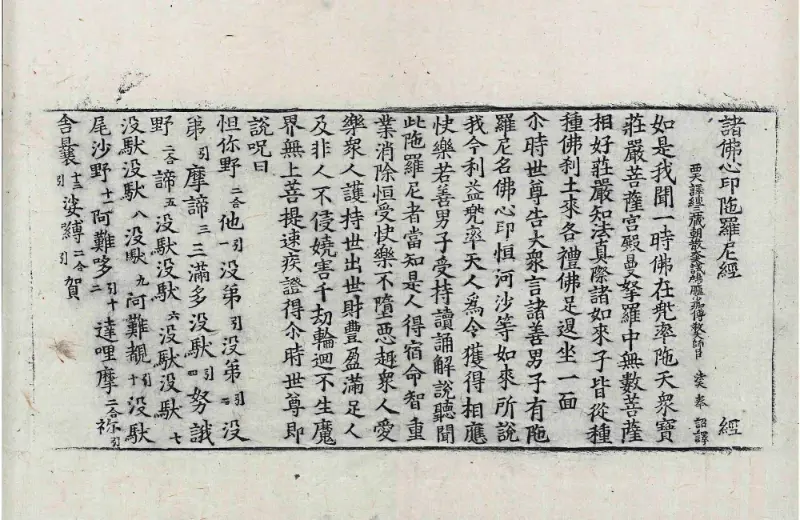 諸佛心印陁羅尼經　經
西天譯經三藏朝散大夫試鴻臚少卿傳教大師臣　法天奉　詔譯
如是我聞一時佛在兠率陁天衆寶
莊嚴菩薩宮殿曼拏羅中無數菩薩
相好莊嚴知法真際諸如來子皆從種
種佛刹土來各禮佛足退坐一面
尒時世尊告大衆言諸善男子有陁
羅尼名佛心印恒河沙等如來所說
我今利益兠率天人爲令獲得相應
快樂若善男子受持讀誦解說聽聞
此陁羅尼者當知是人得宿命智重
業消除恒受快樂不墮惡趣衆人愛
樂衆人護持世出世財豐盈滿足人
及非人不侵嬈害千劫輪迴不生魔
界無上菩提速疾證得尒時世尊即
說呪曰
怛你野二合他一引没弟引没弟引二没
弟引摩諦三三滿多没馱引四努誐
野二合諦五没馱没馱六没馱没馱七
没馱没馱八没馱九阿難覩引十没馱
尾沙野十一阿難哆引十二達哩摩二合祢引
舍曩引十三娑縛二合引賀引